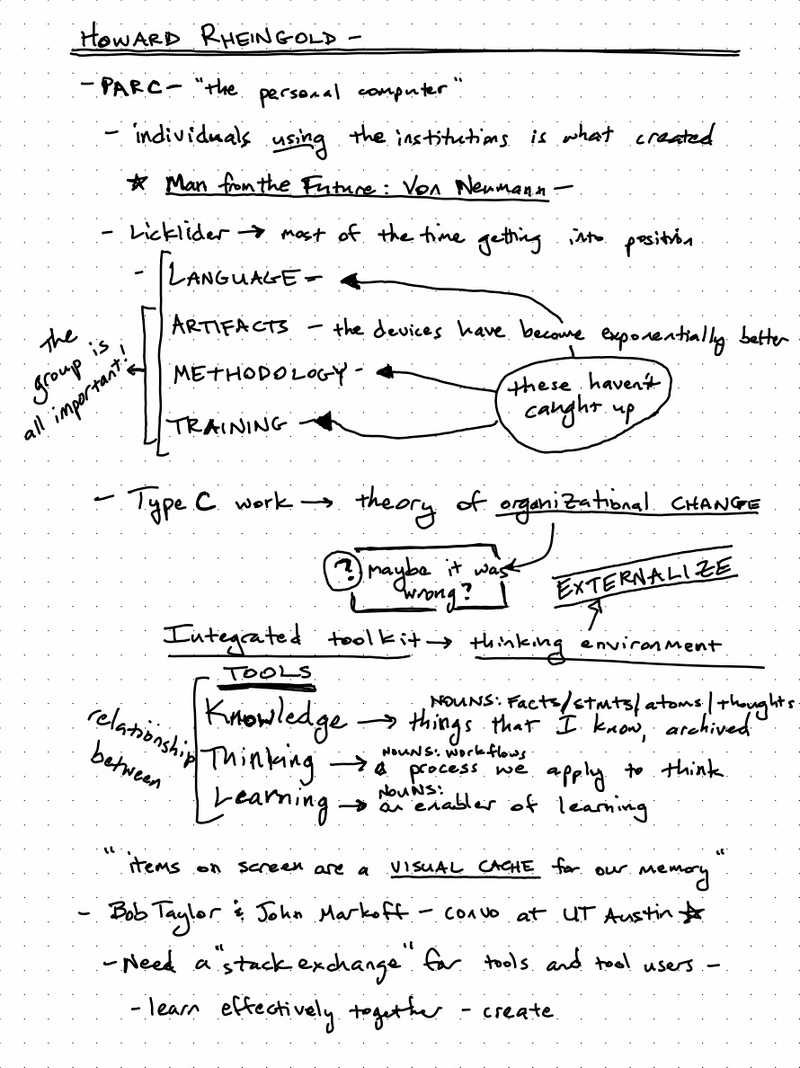 HOWARD RHEINGOLD -
- PARC - "the personal computer"
- individuals using the institutions is what created
☆ Man from the Future: Von Neumann -
- Licklider → most of the time getting into position
- LANGUAGE -
ARTIFACTS - the devices have become exponentially better
METHODOLOGY -
TRAINING -
The group is all important!
these haven't
caught up
- Type C work → theory of organizational CHANGE
? maybe it was
wrong?
EXTERNALIZE
Integrated toolkit → thinking environment
TOOLS
relationship
between
NOUNS: Facts/stmts/atoms/thoughts
Knowledge → things that I know, archived
NOUNS: workflows
Thinking → a process we apply to think
NOUNS:
Learning → an enabler of learning
"items on screen are a VISUAL CACHE for our memory"
- Bob Taylor & John Markoff - convo at UT Austin ☆
- Need a "stack exchange" for tools and tool users -
- learn effectively together - create